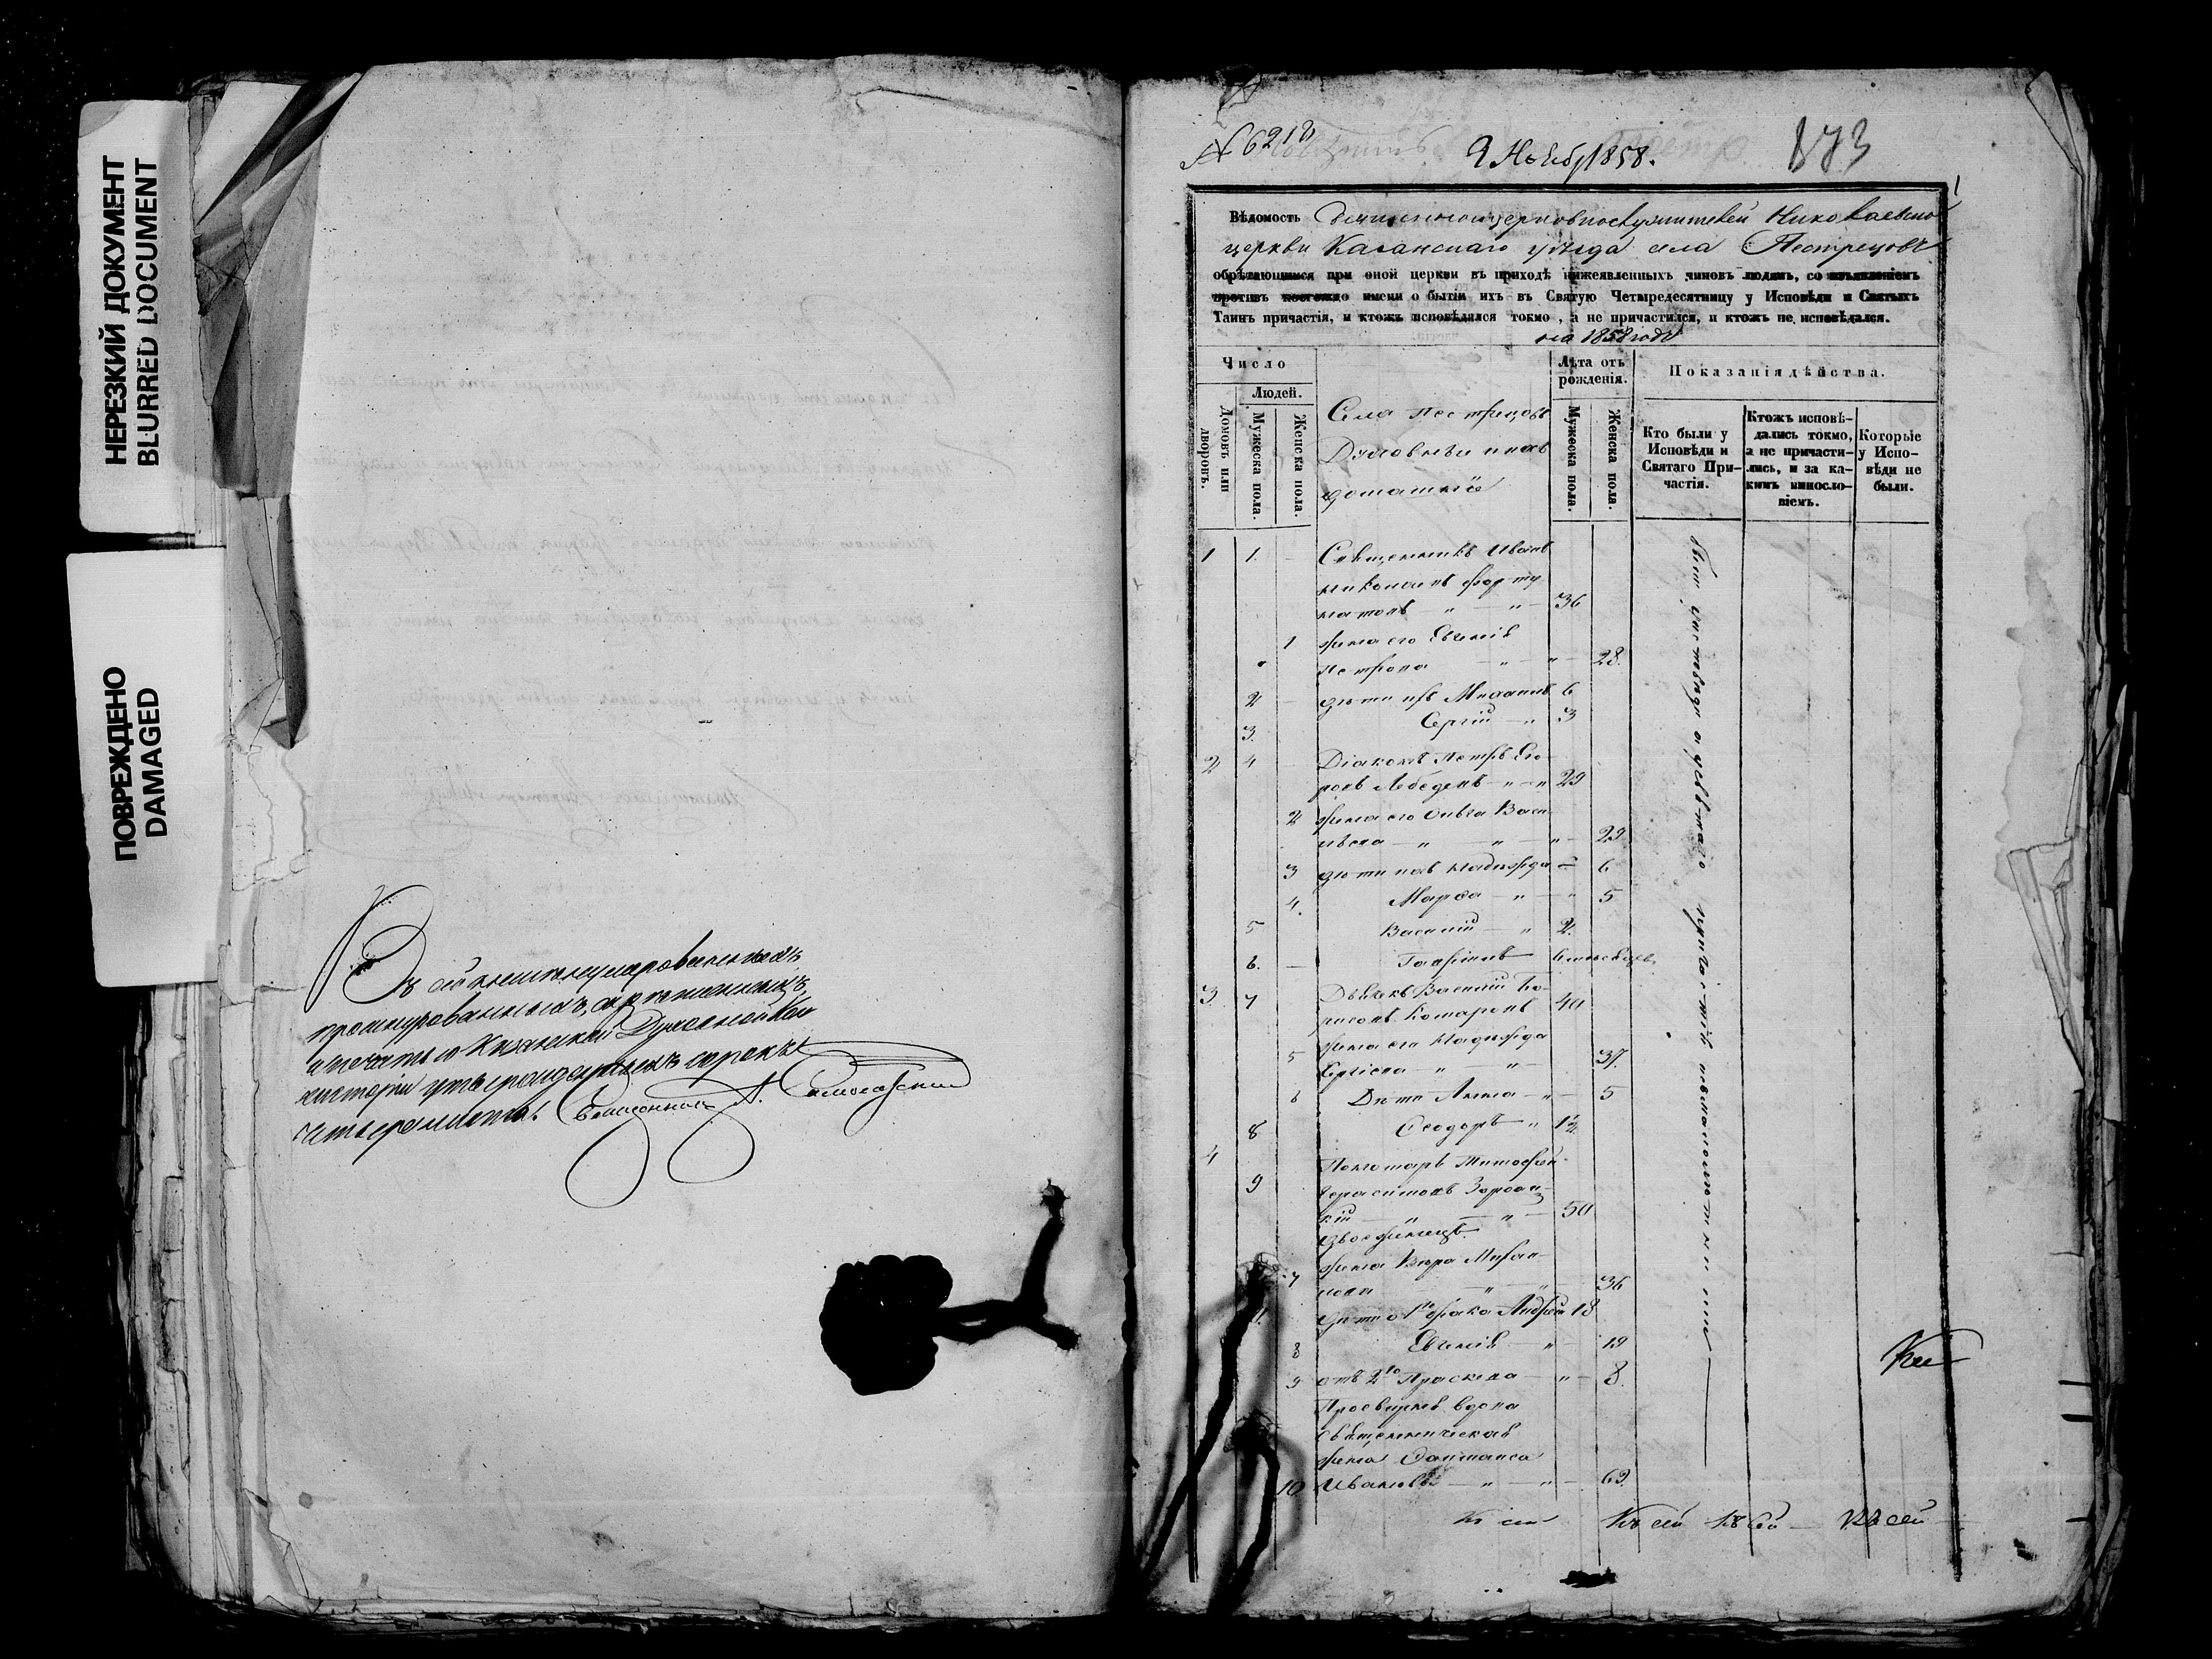 НЕРЕЗКИЙ ДОКУМЕНТ
BLURRED DOCUMENT
ПОВРЕЖДЕНО
DAMAGED
Въ сей книге нумерованныхъ
прошнурованныхъ, скрепленныхъ
и печатью Казанской Духовной Кон
систоріи утвержденныхъ сорокъ
четыре листа. Священникъ А.
№ 6218
9 Ноябр 1858.
873
1
Вѣдомость Священноцерковнослужителей Николаевской
церкви Казанскаго уѣзда села Пестрецовъ
обрѣтающимся при оной церкви въ приходѣ нижеявленныхъ чиновъ людямъ, со изъявленіемъ
противъ коегождо имени о бытіи ихъ въ Святую Четыредесятницу у Исповѣди и Святыхъ
Таинъ причастія, и ктожъ исповѣдался токмо, а не причастился, и ктожъ не исповѣдался.
на 1858 годъ
Число
Людей.
Домовъ или дворовъ.
Мужеска пола.
Женска пола.
Села Пестрецовъ
Духовные и ихъ
домашніе
Лѣта отъ рожденія.
Мужеска пола.
Женска пола.
Показанія дѣйства.
Кто были у Исповѣди и Святаго Причастія.
Ктожъ исповѣдались токмо, а не причастились, и за какимъ винословіемъ.
Которые у Исповѣди не были.
1 1. Священникъ Иванъ
Николаевъ Форту
натовъ 36
1 жена его Евгенія
Петрова 28.
2 дѣти ихъ Михаилъ 6
3. Сергій 3
2 4 Діаконъ Петръ Его
ровъ Лебедевъ 29
2 жена его Ольга Васи
льева 29
3 дѣти ихъ Надежда 6
4. Марѳа 5
5 Василій 2.
6. Гавріилъ
3. 7 Дьячекъ Василій Бо
рисовъ Комаровъ 40
5 жена его Надежда
Сергіева 37.
6 Дѣти Анна 5
8 Ѳеодоръ 1½
4 Пономарь Тимофей
9 Герасимовъ
кій 50
двоеженецъ
7 жена Вѣра Михай
лова 36
дѣти о 1го брака Андрей 18
8 Евгенія 19
9 отъ 2го Праскева 8.
Просвирня вдова
священническая
жена
10 Иванова 69.
были у исповѣди и у святаго причастія
Кон
Къ сей Къ сей Къ сей Къ сей